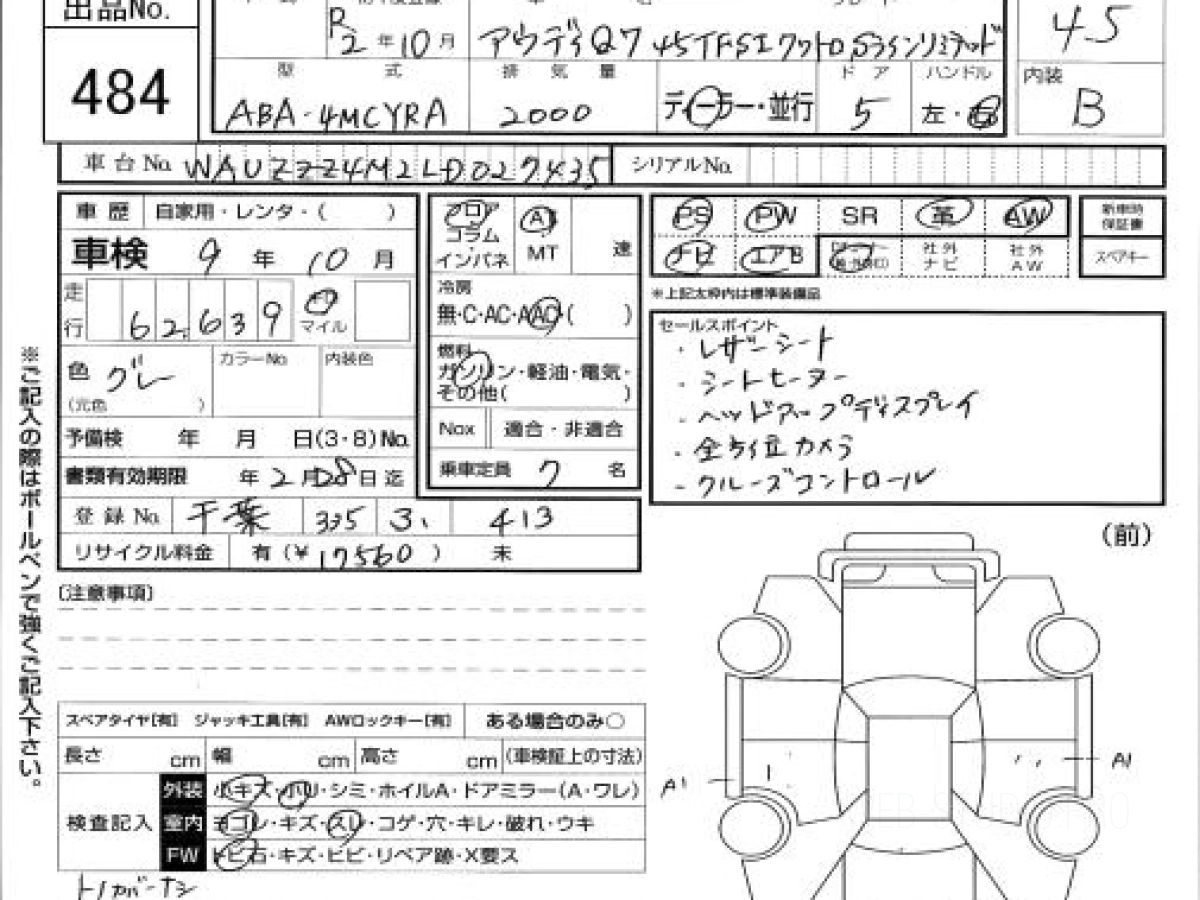 出品No.
484
R2年10月
アウディQ7 45TFSIクワトロSラインリミテッド
45
型 式
排 気 量
ドア
ハンドル
内装
ABA-4MCYRA
2000
ディーラー・並行
5
左・右
B
車台No. WAUZZZ4M2LD027435
シリアルNo.
車歴 自家用・レンタ・( )
車検 9年10月
走行 62,639
マイル
色 グレー
(元色 )
カラーNo.
内装色
予備検 年 月 日(3・8)No.
書類有効期限 年2月28日迄
登録No. 千葉 335 3, 413
リサイクル料金 有(¥17560) 未
フロア
コラム
インパネ
AT
MT
速
冷房
無・C・AC・AAC( )
燃料
ガソリン・軽油・電気・
その他( )
Nox 適合・非適合
乗車定員 7名
PS PW SR 革 AW
ナビ エアB 社外ナビ 社外AW
新車時保証書
スペアキー
※上記太枠内は標準装備品
セールスポイント
・レザーシート
・シートヒーター
・ヘッドアップディスプレイ
・全方位カメラ
・クルーズコントロール
※ご記入の際はボールペンで強くご記入下さい。
(前)
〔注意事項〕
スペアタイヤ[有] ジャッキ工具[有] AWロックキー[有] ある場合のみ○
長さ cm 幅 cm 高さ cm (車検証上の寸法)
検査記入
外装 小キズ・小凹・シミ・ホイルA・ドアミラー(A・ワレ)
室内 ヨゴレ・キズ・スレ・コゲ・穴・キレ・破れ・ウキ
FW トビ石・キズ・ヒビ・リペア跡・X要ス
トノカバーナシ
A1
A1